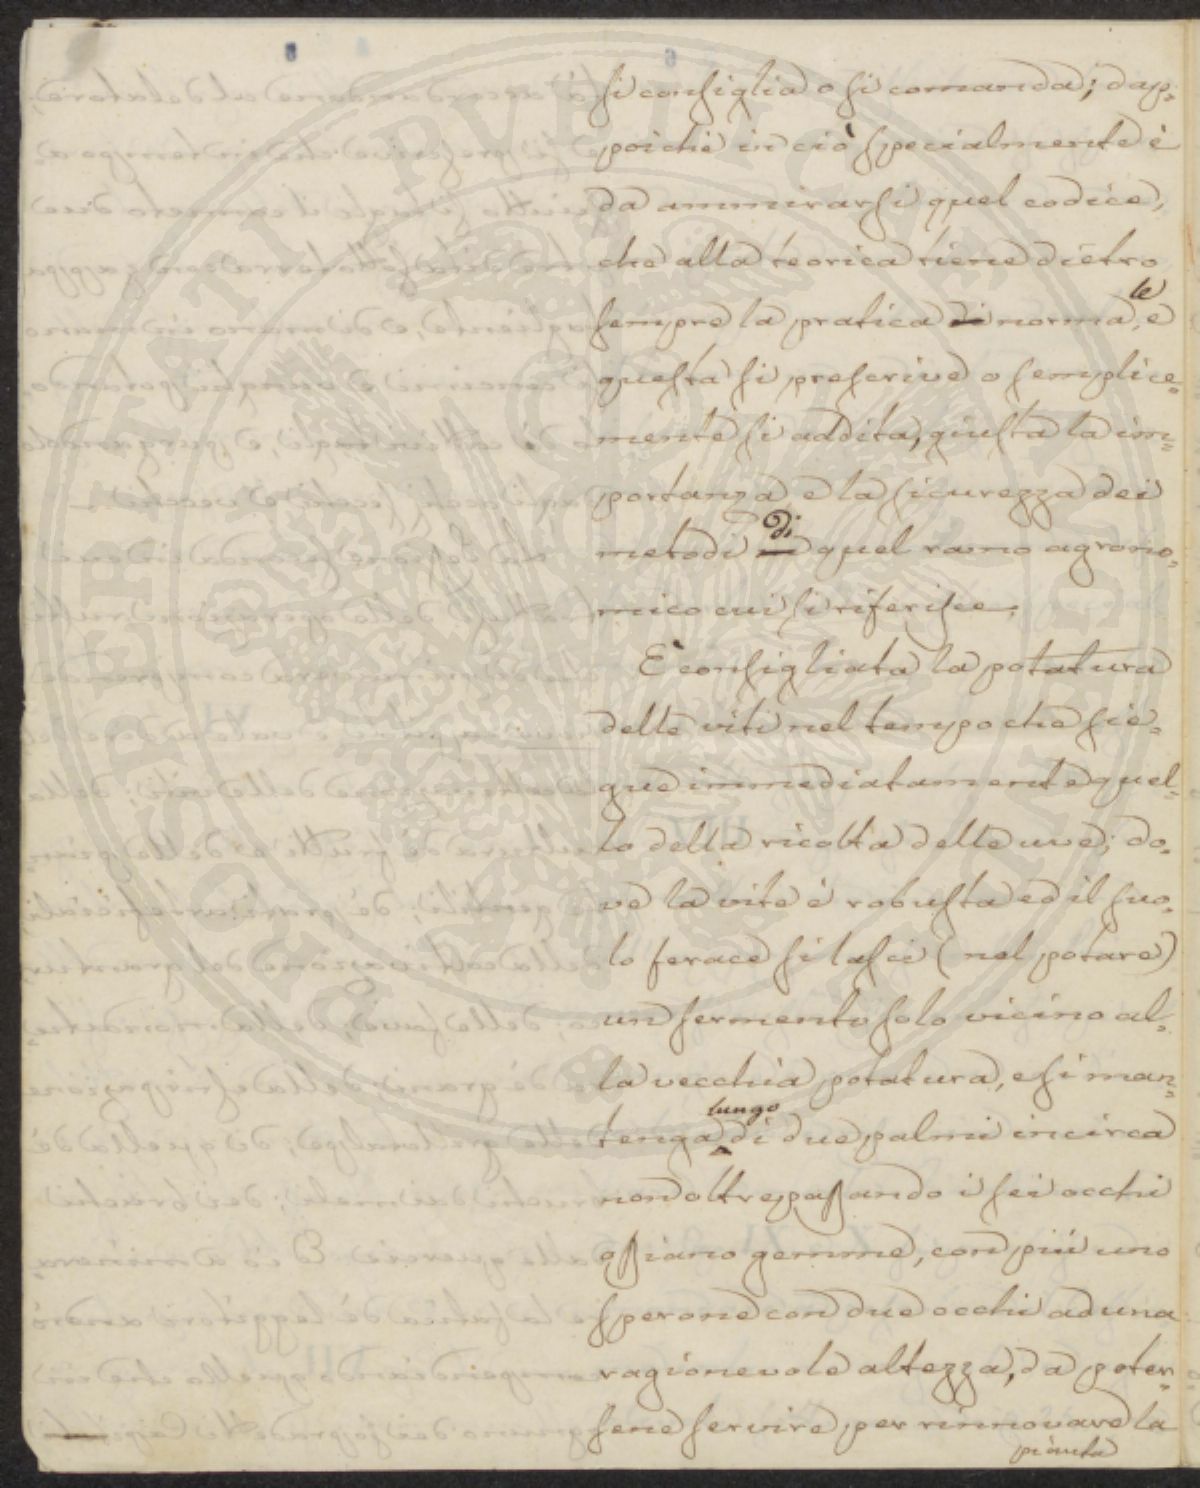 si consiglia o si comanda; dap-
poichè in ciò specialmente è
da ammirarsi quel codice,
che alla teorica tiene dietro
sempre la pratica di norma, e
le
questa si prescrive o semplice-
mente si addita, giusta la im-
portanza e la sicurezza dei
metodi di quel ramo agrono-
mico cui si riferisce.
È consigliata la potatura
delle viti nel tempo che sie-
gue immediatamente quel-
lo della ricolta delle uve; do-
ve la vite è robusta ed il suo-
lo ferace si lasci (nel potare)
un sermento solo vicino al-
la vecchia potatura, e si man-
tenga lungo di due palmi incirca
non oltrepassando i sei occhi
ossiano gemme, con più uno
sperone con due occhi ad una
ragionevole altezza, da poter-
sene servire per rinnovare la
pianta
PROSPERITATI PVBLICAE AVGENDAE